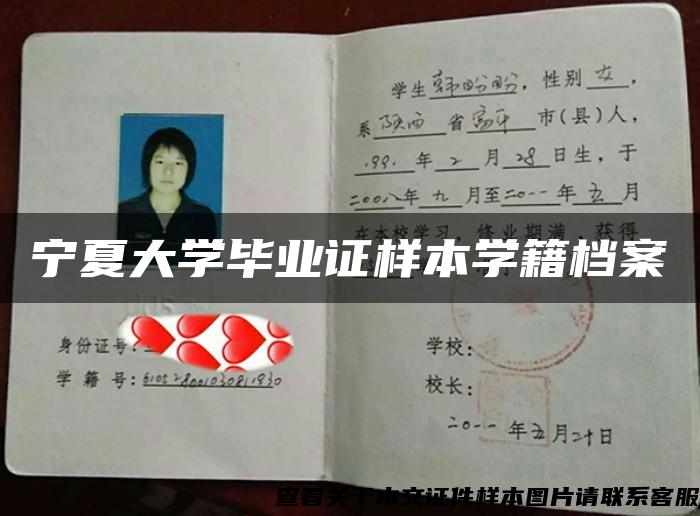 学生韩盼盼，性别女，
系陕西省富平市(县)人，
1991年2月28日生，于
二00八年九月至二0一一年五月
在本校学习，修业期满，获得
宁夏大学毕业证样本学籍档案
身份证号：
学籍号：
学校：
校长：
二0一一年五月二十日
查看关于本文证件样本图片请联系客服